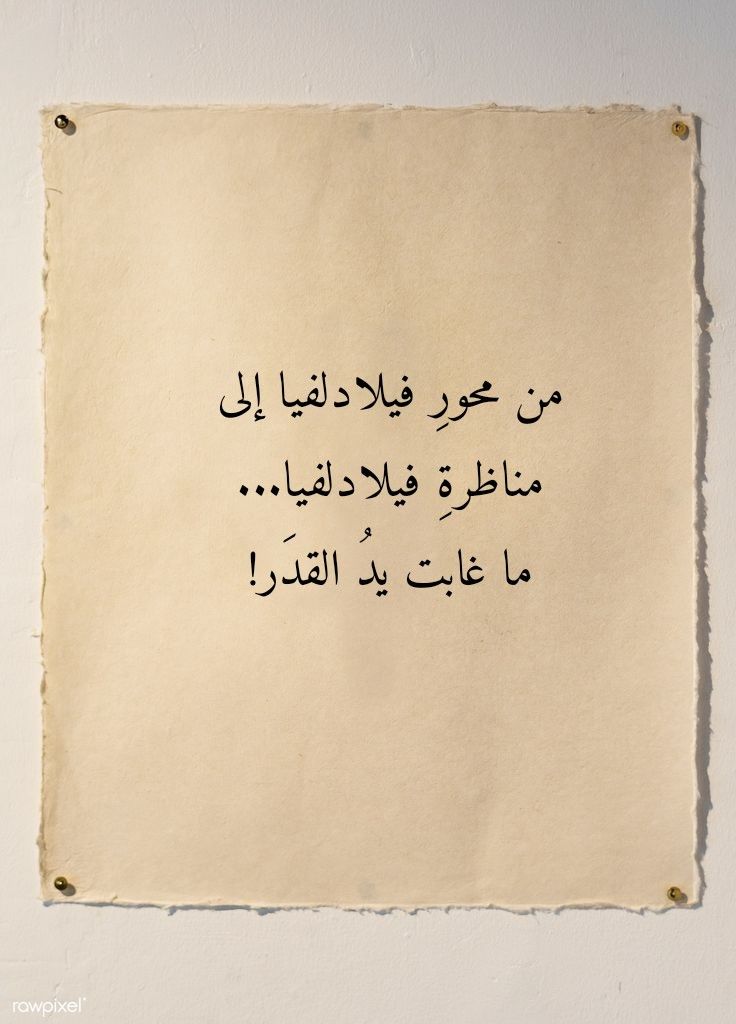 من محورِ فيلادلفيا إلى
مناظرةِ فيلادلفيا...
ما غابت يدُ القدَر!
rawpixel